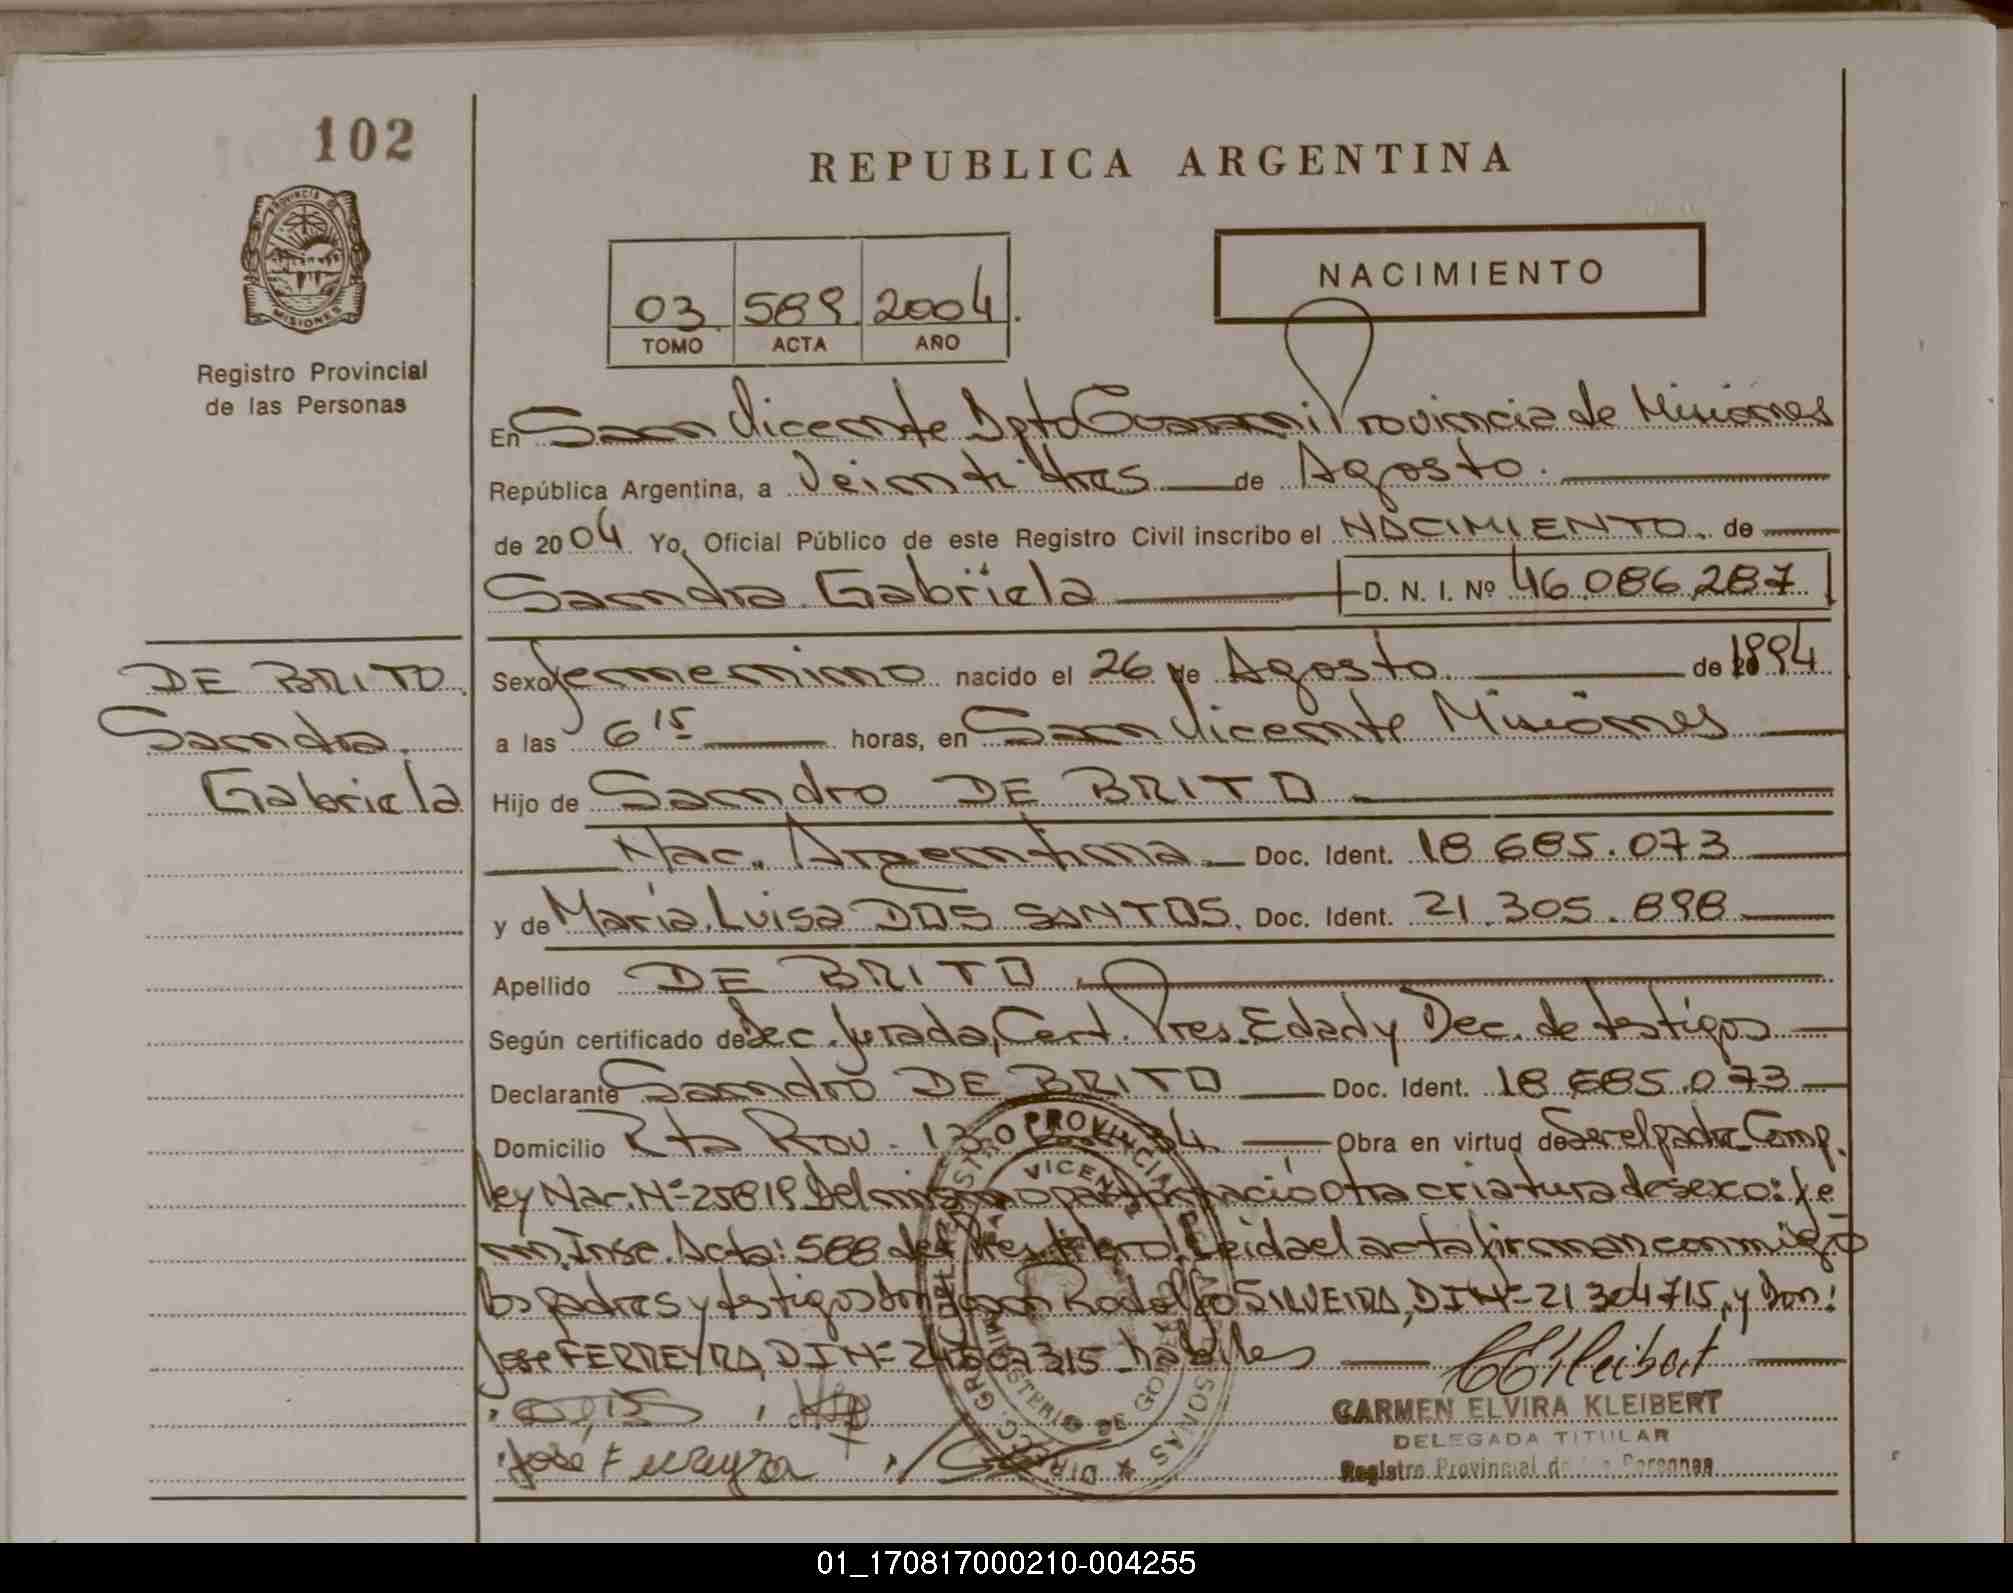 102
REPUBLICA ARGENTINA
PROVINCIA DE
MISIONES
Registro Provincial
de las Personas
03 589 2004
TOMO ACTA AÑO
NACIMIENTO
En San Vicente Dpto Guarani Provincia de Misiones
República Argentina, a Veinti tres de Agosto.
de 2004 Yo, Oficial Público de este Registro Civil inscribo el NACIMIENTO de
Sandra Gabriela D. N. I. Nº 46.086.287
DE BRITO
Sandra
Gabriela
Sexo femenino nacido el 26 de Agosto de 1994
a las 6 15 horas, en San Vicente Misiones
Hijo de Sandro DE BRITO
Nac. Argentina Doc. Ident. 18.685.073
y de María Luisa DOS SANTOS. Doc. Ident. 21.305.898
Apellido DE BRITO
Según certificado de Dec. Jurada, Cert. Pres. Edad y Dec. de testigos
Declarante Sandro DE BRITO Doc. Ident. 18.685.073
Domicilio Rta Prov. 13 Obra en virtud de Ser el padre Comp.
ley Nac. Nº 25819 Del mismo parto nació otra criatura de sexo: fe
m. Insc. Acta: 588 del Leida el acta firman conmigo
los padres y testigos don Rodolfo SILVEIRA, DI Nº 21304715, y Don:
Jose FERREYRA, DI Nº habiles
José Ferreyra
CARMEN ELVIRA KLEIBERT
DELEGADA TITULAR
Registro Provincial de las Personas
01_170817000210-004255